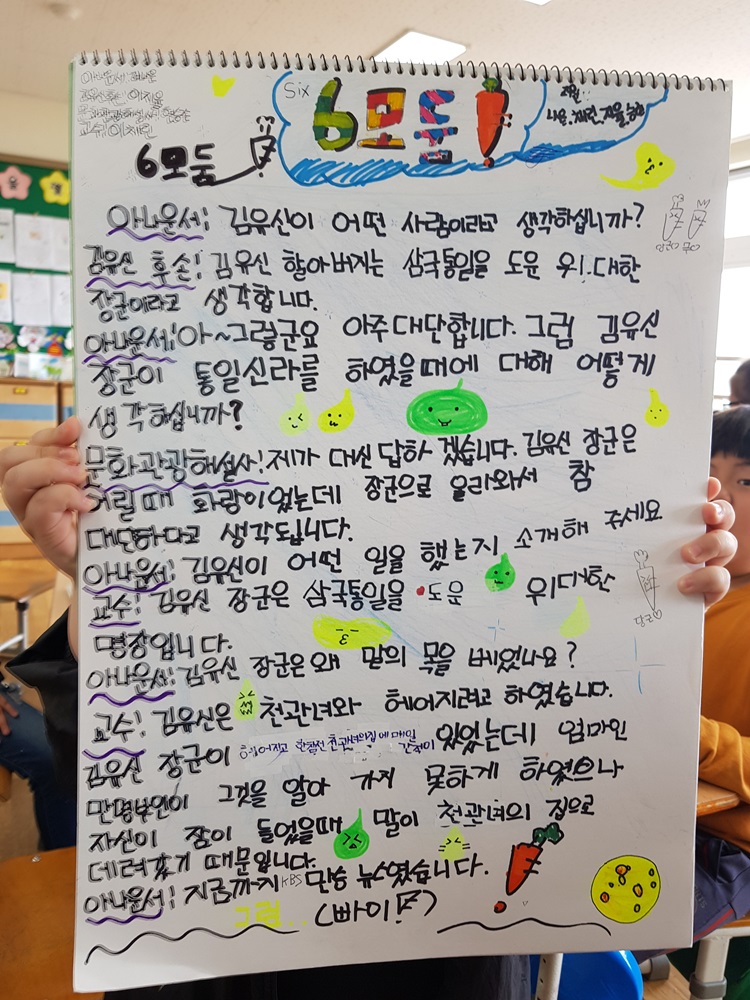 아나운서:
이지율
교수: 이채린
Six 6모둠!
6모둠
아나운서: 김유신이 어떤 사람이라고 생각하십니까?
당근 무
김유신 후손: 김유신 할아버지는 삼국통일을 도운 위대한
장군이라고 생각합니다.
아나운서: 아~그렇군요 아주 대단합니다. 그럼 김유신
장군이 통일신라를 하였을때에 대해 어떻게
생각하십니까?
문화관광해설사: 제가 대신 답하겠습니다. 김유신 장군은
어릴때 화랑이었는데 장군으로 올라와서 참
대단하다고 생각됩니다.
아나운서: 김유신이 어떤 일을 했는지 소개해 주세요
교수: 김유신 장군은 삼국통일을 도운 위대한
당근
명장입니다.
아나운서: 김유신 장군은 왜 말의 목을 베었나요?
교수: 김유신은 천관녀와 헤어지려고 하였습니다.
김유신 장군이 헤어지고 한참전 천관녀의집에 매일 간적이 있었는데 엄마인
만명부인이 그것을 알아 가지 못하게 하였으나
자신이 잠이 들었을때 말이 천관녀의 집으로
데려갔기 때문입니다.
아나운서: 지금까지 KBS 만승 뉴스였습니다.
그럼.. (빠이!)